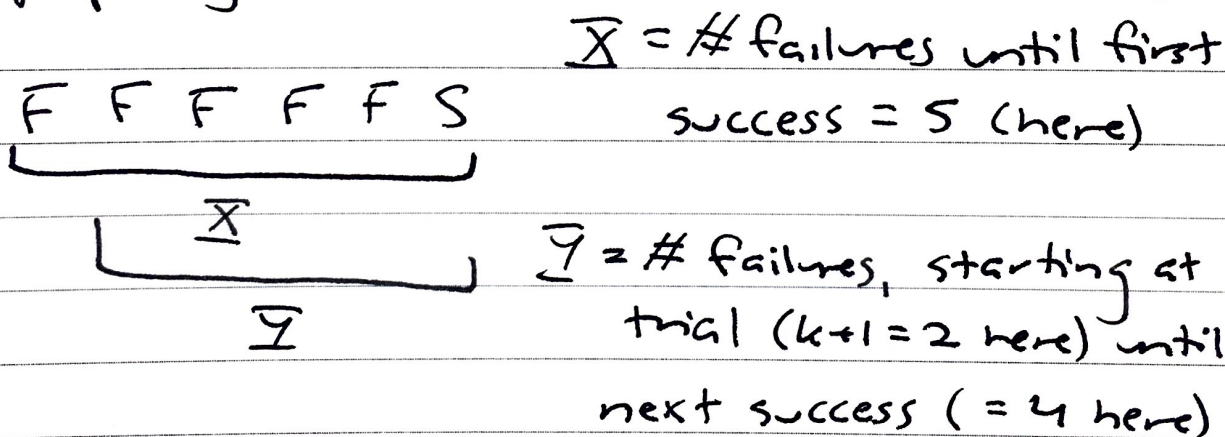 X = # failures until first
F F F F F S success = 5 (here)
X
Y = # failures, starting at
Y trial (k+1 = 2 here) until
next success (= 4 here)